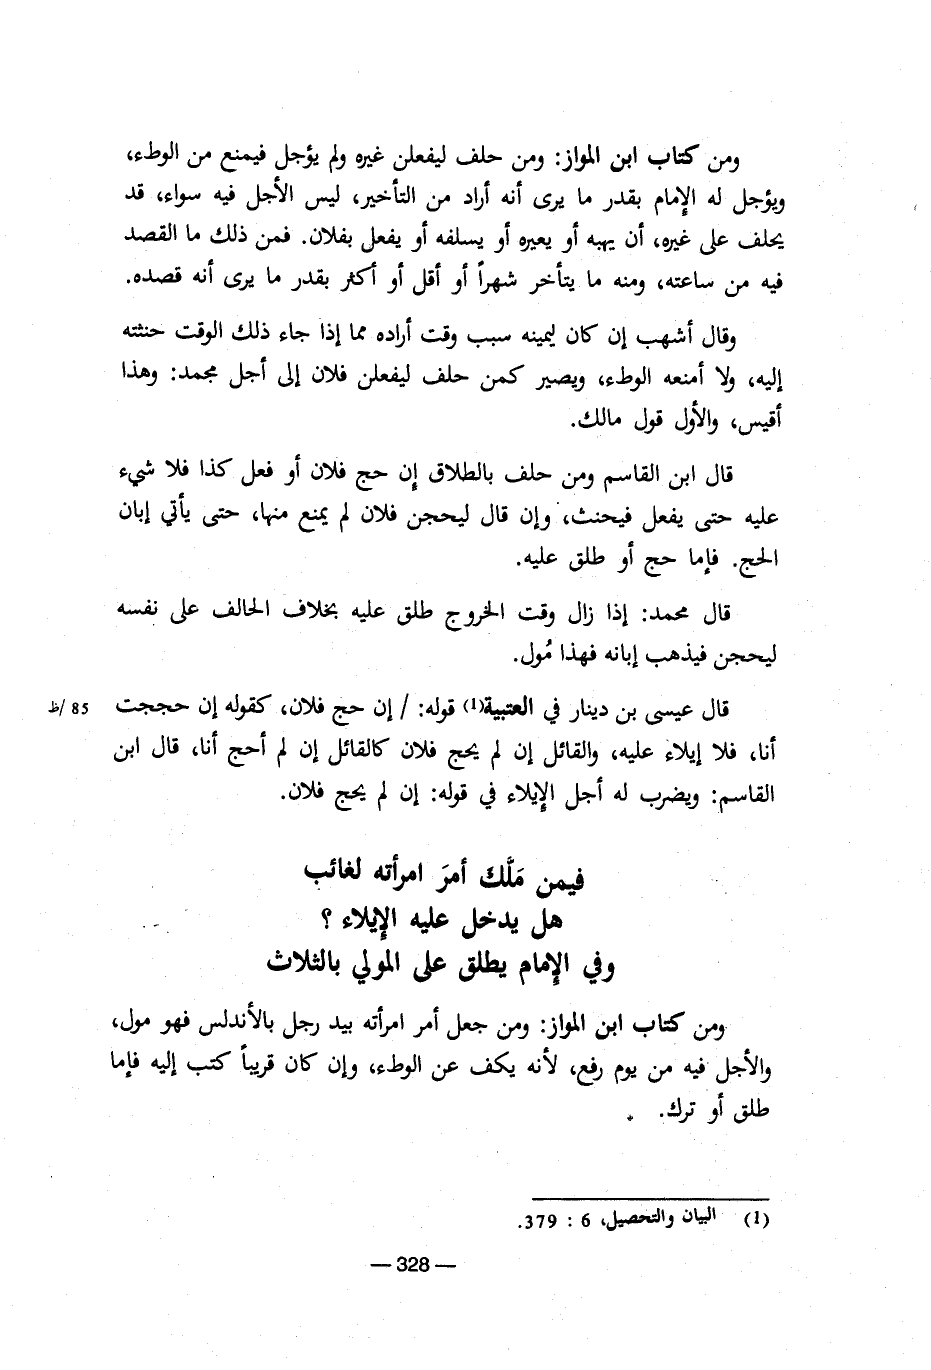 ومن كتاب ابن المواز: ومن حلف ليفعلن غيره ولم يؤجل فيمنع من الوطء،
ويؤجل له الإمام بقدر ما يرى أنه أراد من التأخير، ليس الأجل فيه سواء، قد
يحلف على غيره، أن يهبه أو يعيره أو يسلفه أو يفعل بفلان. فمن ذلك ما القصد
فيه من ساعته، ومنه ما يتأخر شهراً أو أقل أو أكثر بقدر ما يرى أنه قصده.
وقال أشهب إن كان ليمينه سبب وقت أراده مما إذا جاء ذلك الوقت حنثته
إليه، ولا أمنعه الوطء، ويصير كمن حلف ليفعلن فلان إلى أجل محمد: وهذا
أقيس، والأول قول مالك.
قال ابن القاسم ومن حلف بالطلاق إن حج فلان أو فعل كذا فلا شيء
عليه حتى يفعل فيحنث، وإن قال ليحجن فلان لم يمنع منها، حتى يأتي إبان
الحج. فإما حج أو طلق عليه.
قال محمد: إذا زال وقت الخروج طلق عليه بخلاف الحالف على نفسه
ليحجن فيذهب إبانه فهذا مُول.
قال عيسى بن دينار في العتبية(1) قوله: / إن حج فلان، كقوله إن حججت 85 /ظ
أنا، فلا إيلاء عليه، والقائل إن لم يحج فلان كالقائل إن لم أحج أنا، قال ابن
القاسم: ويضرب له أجل الإيلاء في قوله: إن لم يحج فلان.
فيمن مَلَّكَ أمرَ امرأته لغائب
هل يدخل عليه الإيلاء ؟
وفي الإمام يطلق على المولي بالثلاث
ومن كتاب ابن المواز: ومن جعل أمر امرأته بيد رجل بالأندلس فهو مول،
والأجل فيه من يوم رفع، لأنه يكف عن الوطء، وإن كان قريباً كتب إليه فإما
طلق أو ترك.
(1) البيان والتحصيل، 6 : 379.
— 328 —